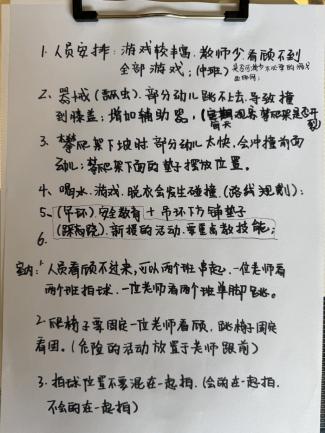 1. 人员安排：游戏较丰富，教师少看顾不到
全部游戏；（中班）
2. 器械（ ）部分幼儿跳不上去，导致撞
到膝盖；增加辅助器，（ 观 攀爬架是否
3. 攀爬架下坡时部分幼儿太快，会冲撞前面
幼儿；攀爬架下面的垫子摆放位置。
4. 喝水、游戏、脱衣会发生碰撞（路线规划）；
5. （吊环）安全教育 + 吊环下方铺垫子
6. （踩高跷）新授的活动，要重点教技能；
室内：1. 人员看顾不过来，可以两个班串起，一位老师看
两个班拍球，一位老师看两个班单脚跳。
2. 爬椅子要固定一位老师看顾，跳椅子固定
看困。（危险的活动放置于老师跟前）
3. 拍球位置不要混在一起拍，（会的在一起拍，
不会的在一起拍）